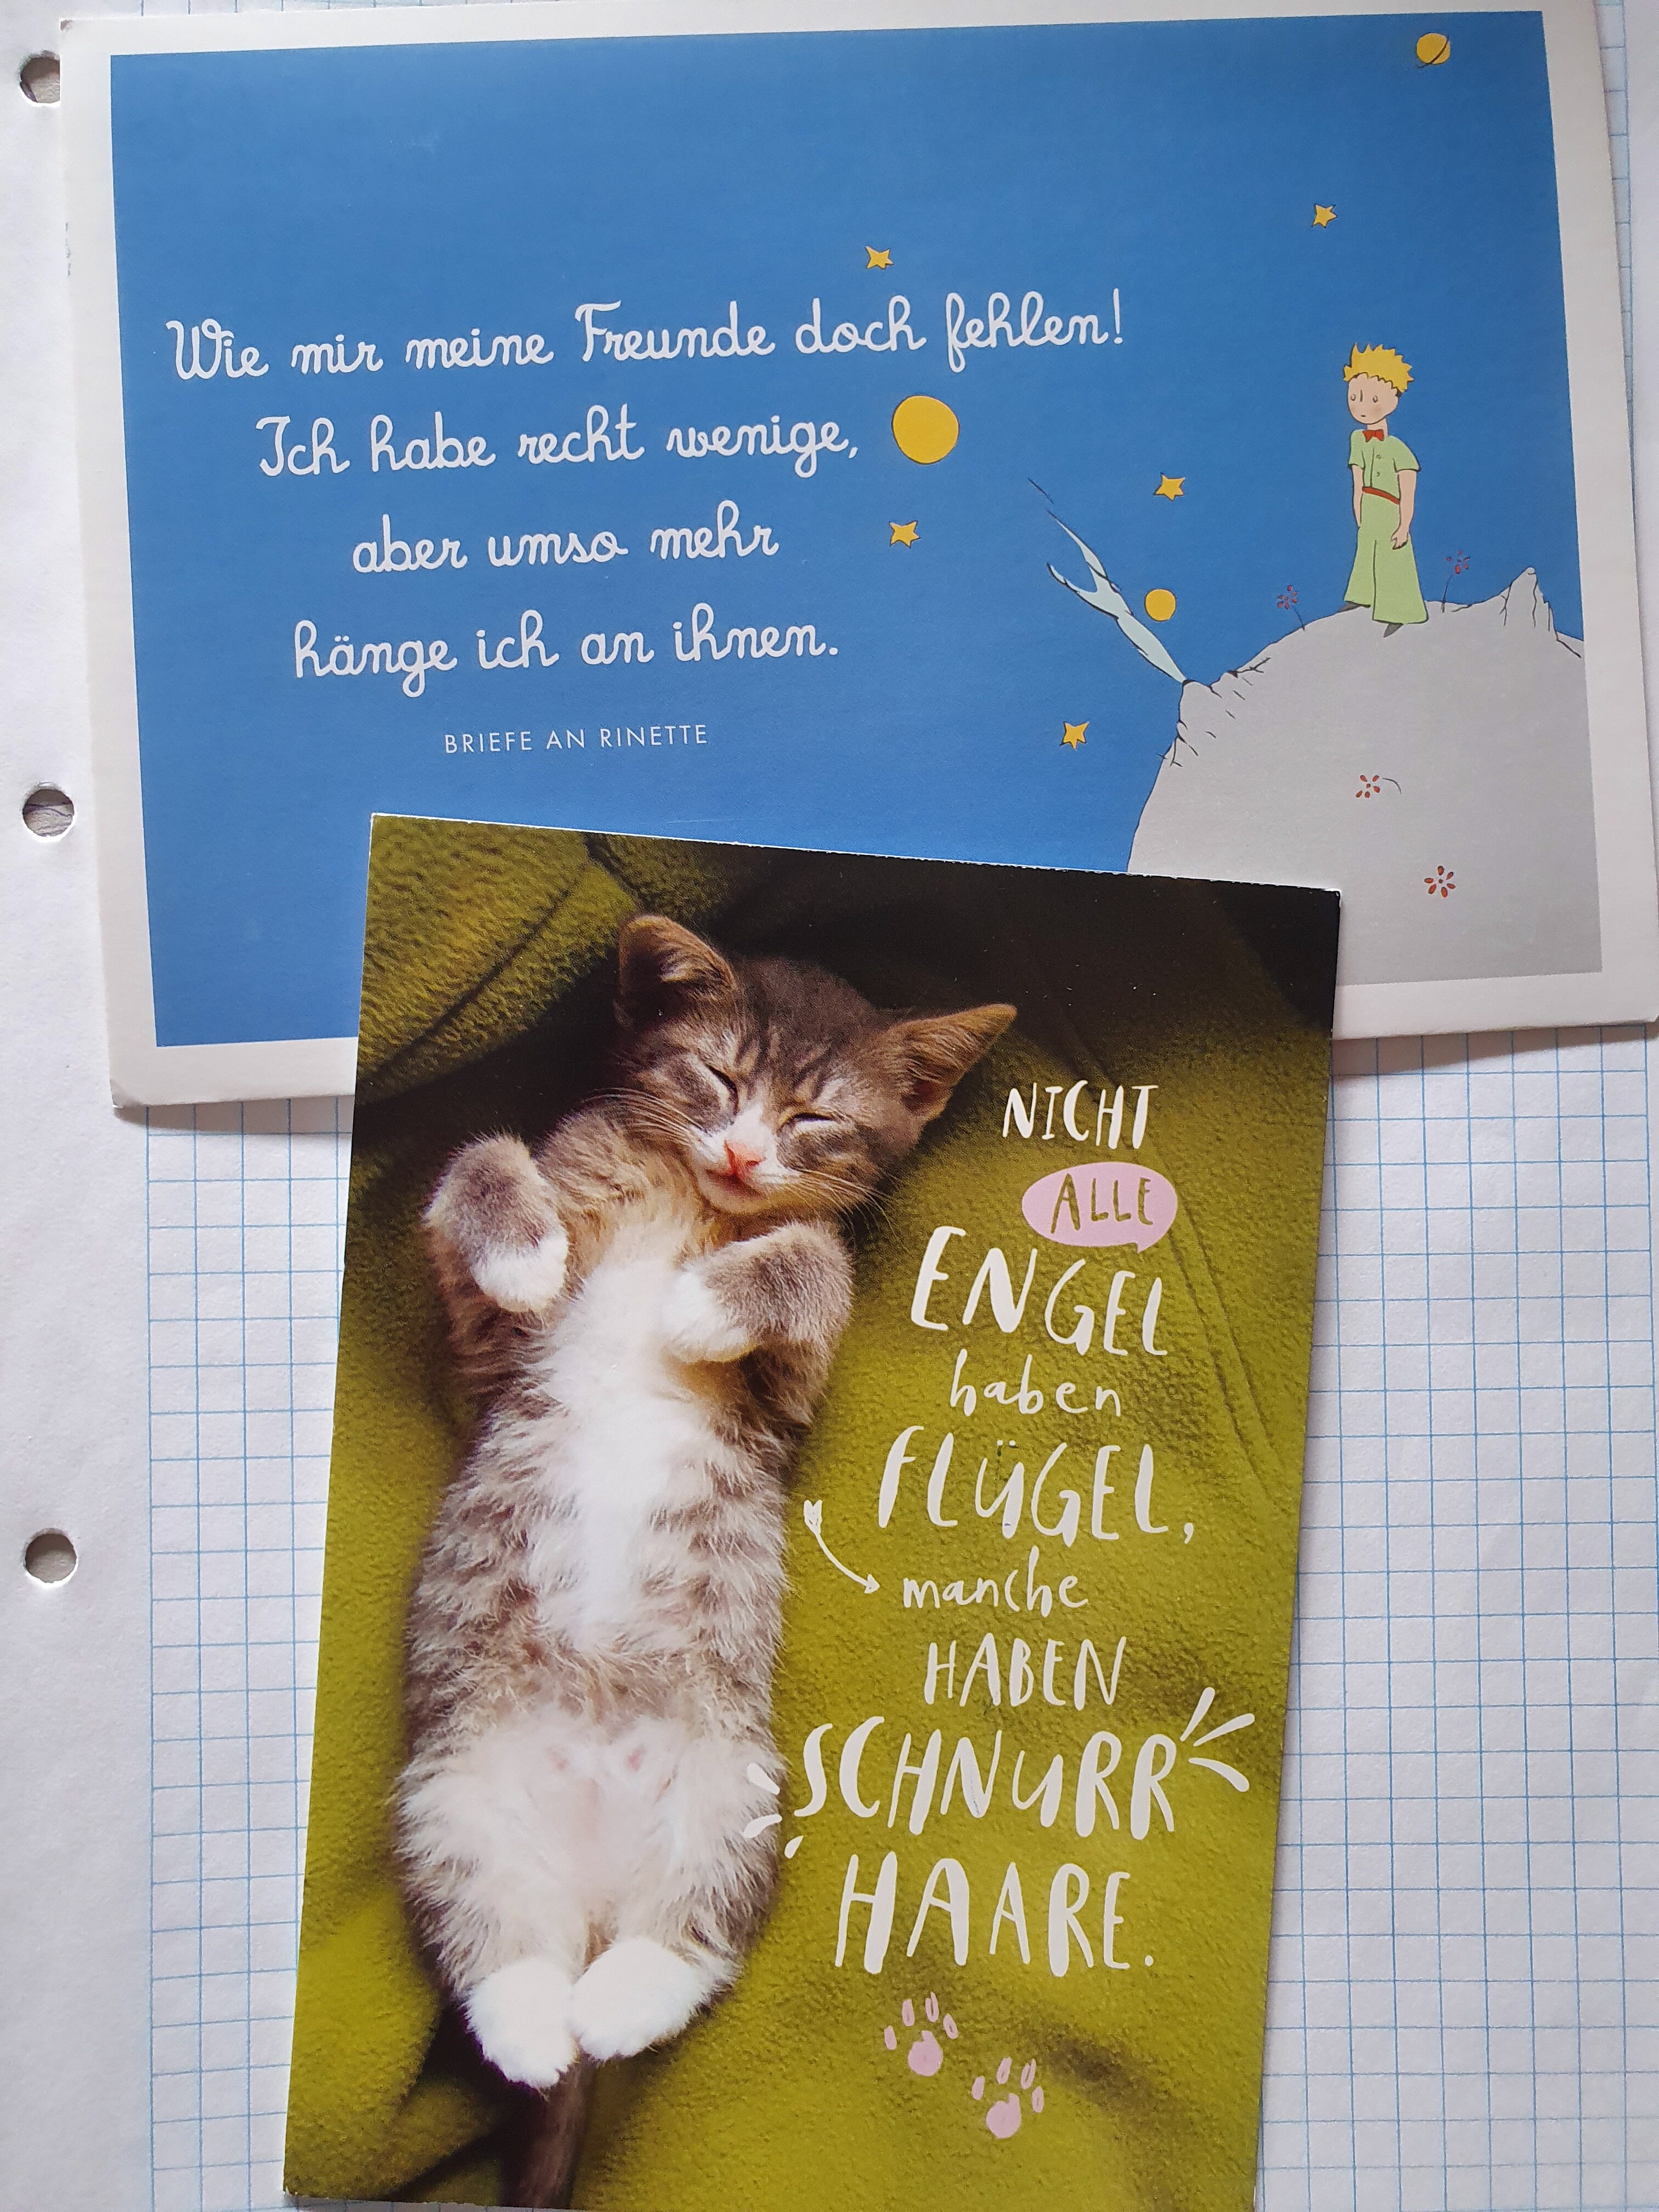 Wie mir meine Freunde doch fehlen!
Ich habe recht wenige,
aber umso mehr
hänge ich an ihnen.
BRIEFE AN RINETTE
NICHT
ALLE
ENGEL
haben
FLÜGEL,
manche
HABEN
SCHNURR
HAARE.